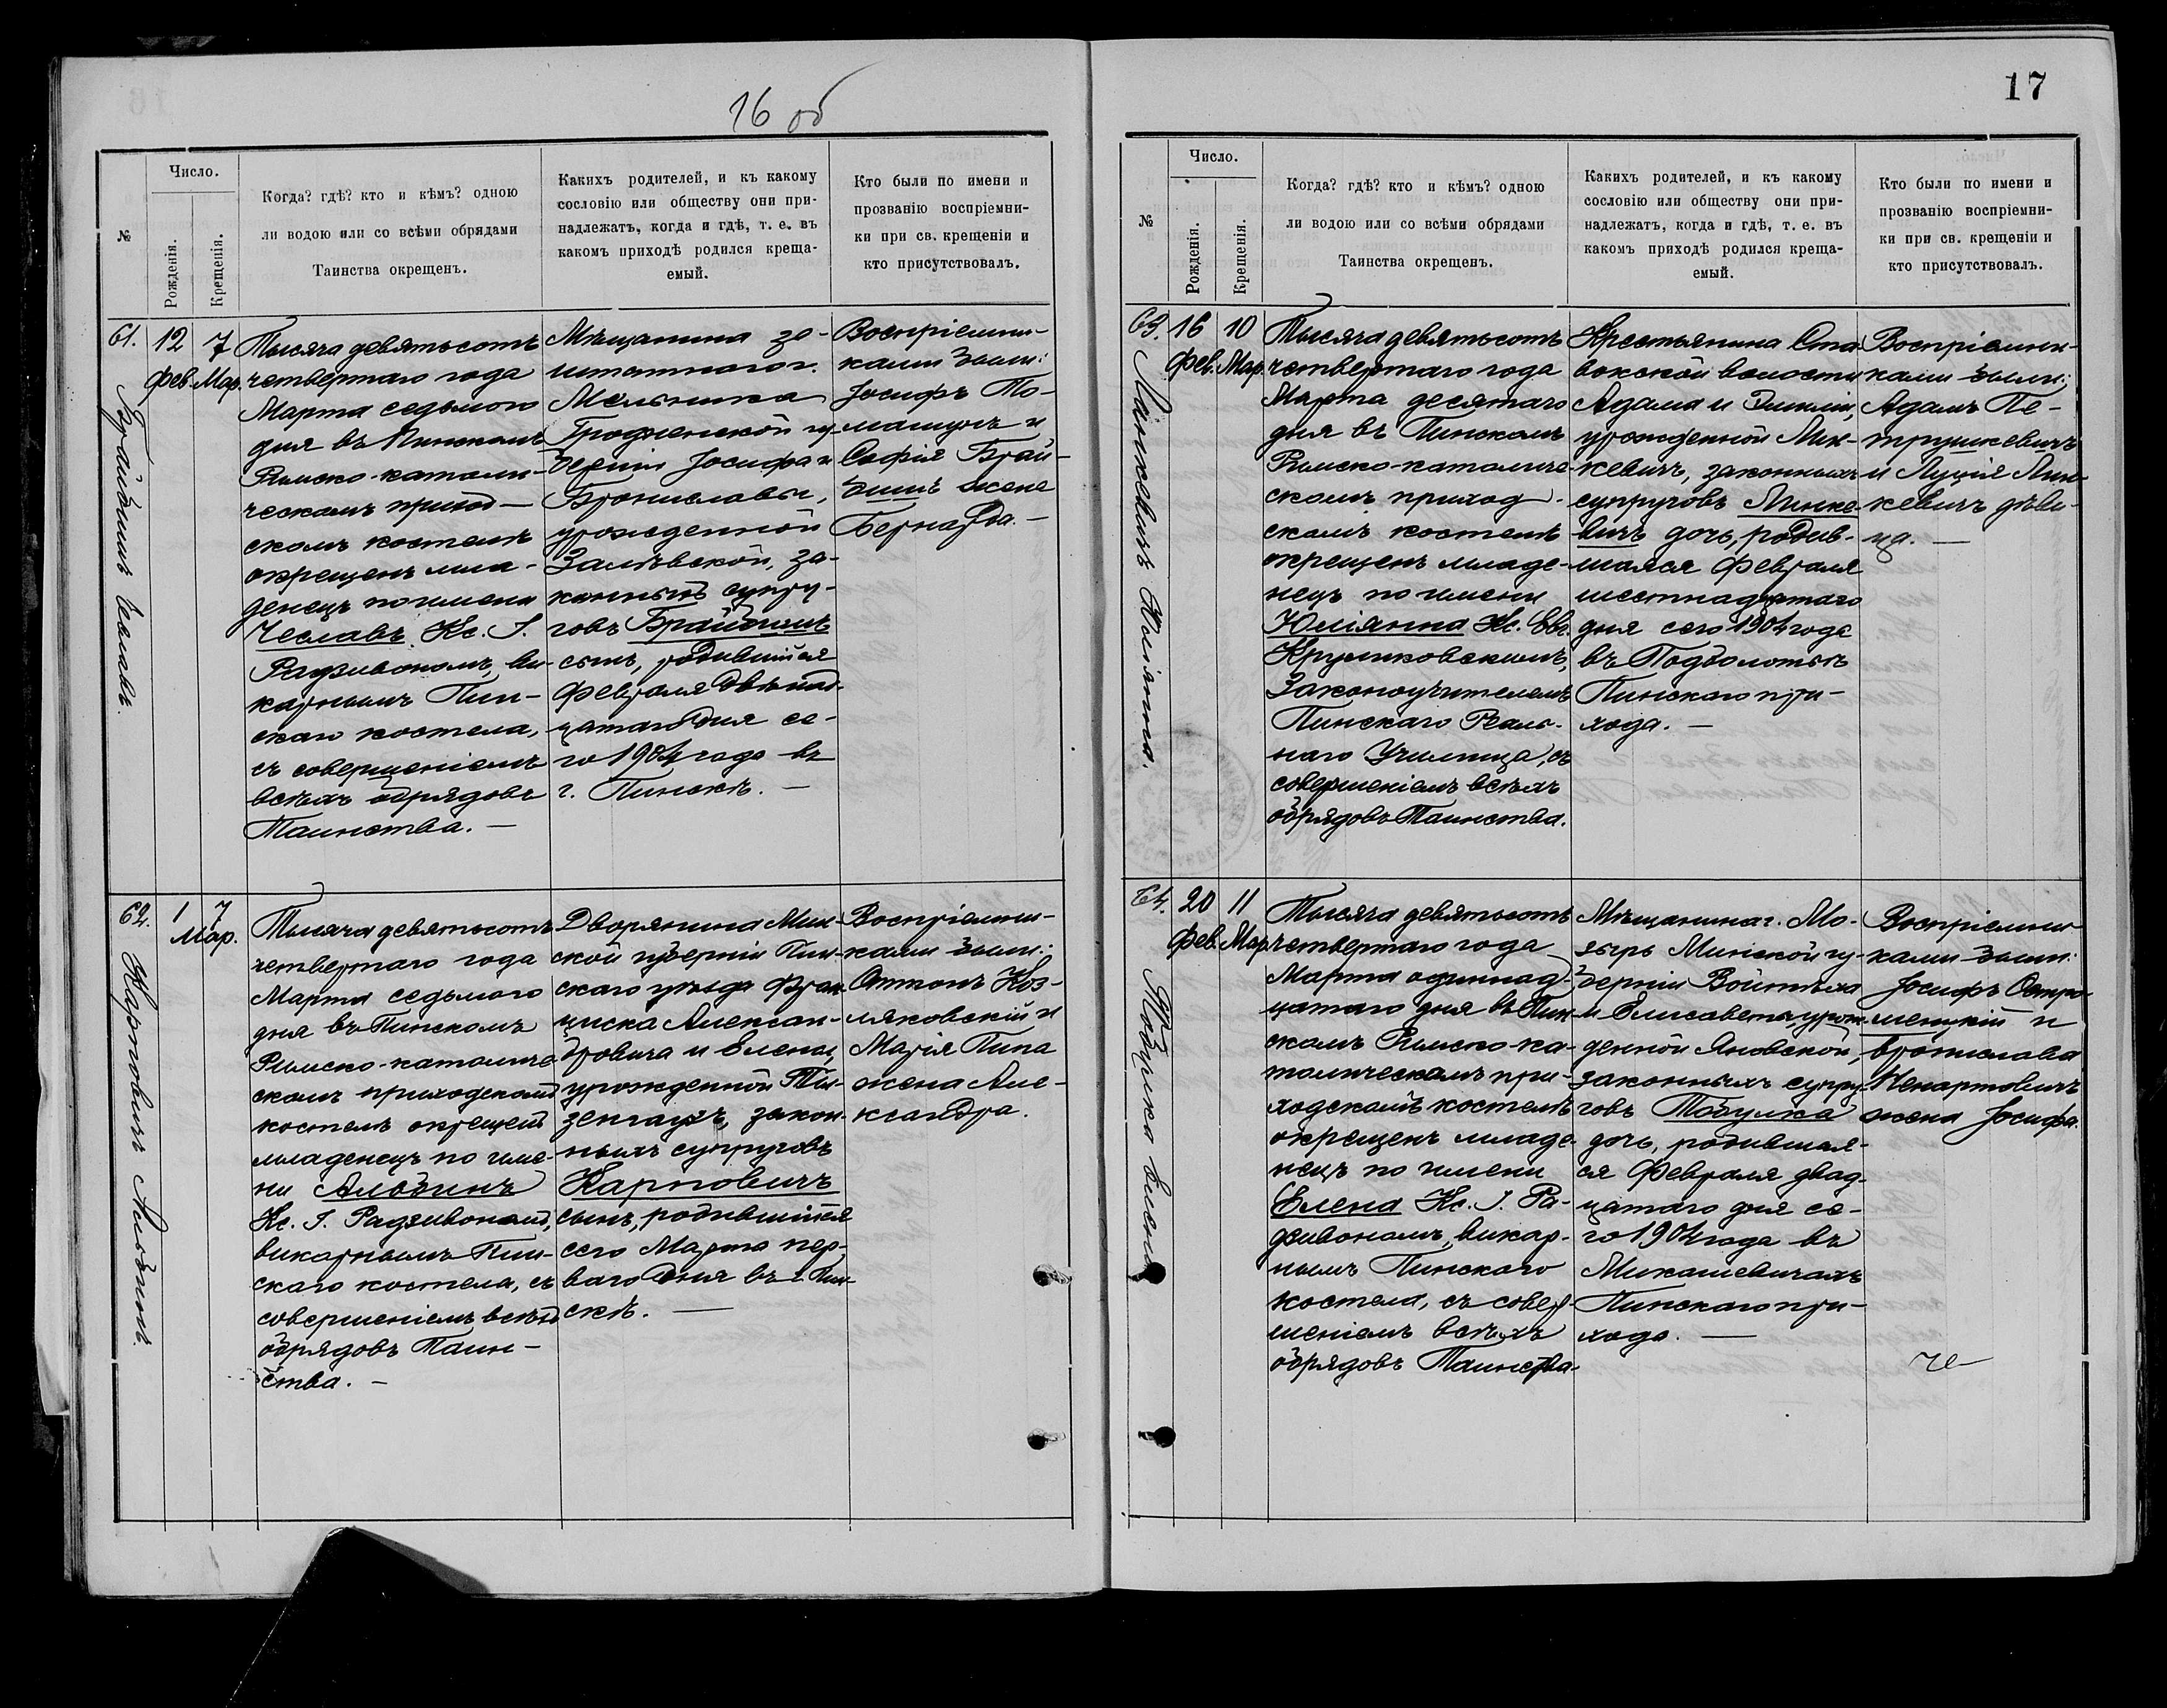 16 об
Число.
№
Рожденія.
Крещенія.
Когда? гдѣ? кто и кѣмъ? одною
ли водою или со всѣми обрядами
Таинства окрещенъ.
Какихъ родителей, и къ какому
сословію или обществу они при-
надлежатъ, когда и гдѣ, т. е. въ
какомъ приходѣ родился креща-
емый.
Кто были по имени и
прозванію воспріемни-
ки при св. крещеніи и
кто присутствовалъ.
61.
Брайбишъ Чеславъ.
12
Фев.
7
Мар.
Тысяча девятьсотъ
четвертаго года
Марта седьмого
дня въ Пинскомъ
Римско-католи-
ческомъ приход-
скомъ костелѣ
окрещенъ мла-
денецъ по имени
Чеславъ Кс. І.
Радзивономъ, ви-
карнымъ Пин-
скаго костела,
съ совершеніемъ
всѣхъ обрядовъ
Таинства. —
Мѣщанина за-
штатного г.
Мельника
Гродненской гу-
берніи Іосифа и
Брониславы,
урожденной
Залѣвской, за-
конныхъ супру-
говъ Брайбишъ
сынъ, родившійся
Февраля двѣнад-
цатаго дня се-
го 1904 года въ
г. Пинскѣ. —
Воспріемни-
ками были:
Іосифъ То-
машукъ и
Софія Брай-
бишъ жена
Бернарда. —
62.
Карповичъ Альбинъ.
1
7
Мар.
Тысяча девятьсотъ
четвертаго года
Марта седьмого
дня въ Пинскомъ
Римско-католиче-
скомъ приходскомъ
костелѣ окрещенъ
младенецъ по име-
ни Альбинъ
Кс. І. Радзивономъ,
викарнымъ Пин-
скаго костела, съ
совершеніемъ всѣхъ
обрядовъ Таин-
ства. —
Дворянина Мин-
ской губерніи Пин-
скаго уѣзда Фран-
циска Алексан-
дровича и Елены,
урожденной Ты-
зенгаузъ, закон-
ныхъ супруговъ
Карповичъ
сынъ, родившійся
сего Марта пер-
ваго дня въ г. Пин-
скѣ. —
Воспріемни-
ками были:
Антонъ Коз-
ляковскій и
Марія Пипа
жена Але-
ксандра.
17
Число.
№
Рожденія.
Крещенія.
Когда? гдѣ? кто и кѣмъ? одною
ли водою или со всѣми обрядами
Таинства окрещенъ.
Какихъ родителей, и къ какому
сословію или обществу они при-
надлежатъ, когда и гдѣ, т. е. въ
какомъ приходѣ родился креща-
емый.
Кто были по имени и
прозванію воспріемни-
ки при св. крещеніи и
кто присутствовалъ.
63.
Линкевичъ Юліанна.
16
Фев.
10
Мар.
Тысяча девятьсотъ
четвертаго года
Марта десятаго
дня въ Пинскомъ
Римско-католиче-
скомъ приход-
скомъ костелѣ
окрещенъ младе-
нецъ по имени
Юліанна Кс. Евг.
Крушковскимъ,
Законоучителемъ
Пинскаго Реаль-
наго Училища, съ
совершеніемъ всѣхъ
обрядовъ Таинства.
Крестьянина Ста-
вокской волости
Адама и Эмиліи,
урожденной Лин-
кевичъ, законныхъ
супруговъ Линке-
вичъ дочь, родив-
шаяся Февраля
шестнадцатаго
дня сего 1904 года
въ Подболотьѣ
Пинскаго при-
хода. —
Воспріемни-
ками были:
Адамъ Пе-
трушкевичъ
и Луція Лин-
кевичъ дѣви-
ца. —
64.
Тобулка Елена
20
Фев.
11
Мар.
Тысяча девятьсотъ
четвертаго года
Марта одиннад-
цатаго дня въ Пин-
скомъ Римско-ка-
толическомъ при-
ходскомъ костелѣ
окрещенъ младе-
нецъ по имени
Елена Кс. І. Ра-
дзивономъ, викар-
нымъ Пинскаго
костела, съ совер-
шеніемъ всѣхъ
обрядовъ Таинства.
Мѣщанина г. Мо-
зырь Минской гу-
берніи Войтѣха
и Елисаветы, урож-
денной Яновской,
законныхъ супру-
говъ Тобулка
дочь, родившая-
ся Февраля двад-
цатаго дня се-
го 1904 года въ
Микашевичахъ
Пинскаго при-
хода. —
Воспріемни-
ками были:
Іосифъ Остро-
менцкій и
Бронислава
Ненартовичъ
жена Іосифа.